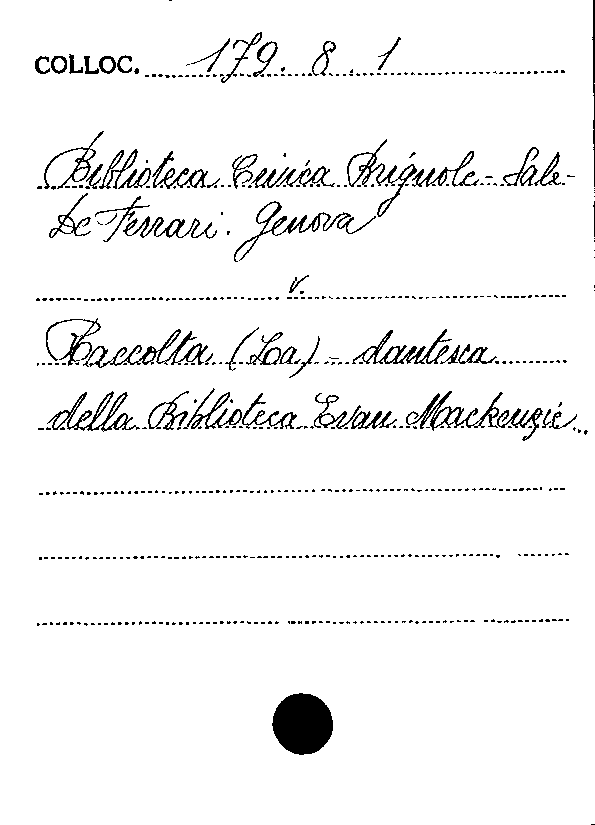 COLLOC. 179. 8. 1
Biblioteca Civica Brignole-Sale-
De Ferrari. Genova
v.
Raccolta (La) - dantesca
della Biblioteca Evan Mackenzie...